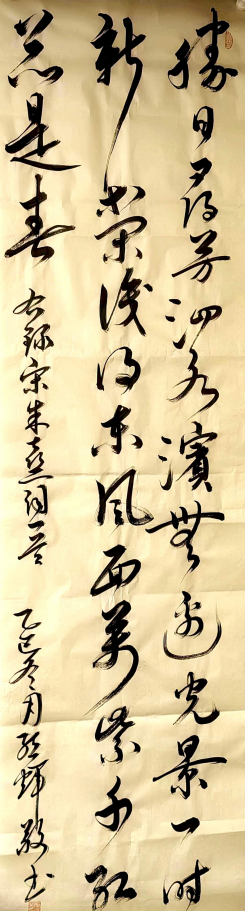 勝日尋芳泗水濱無邊光景一時
新等閒識得東風面萬紫千紅
總是春 右錄宋朱熹詞一首 乙巳冬月輝敬書